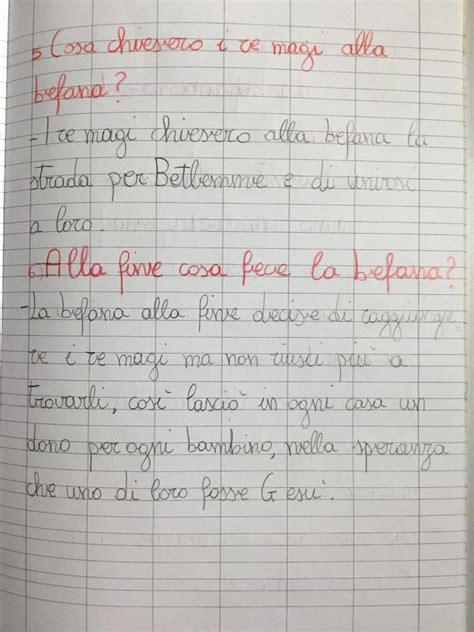 5 Cosa chiesero i re magi alla
befana?
- I re magi chiesero alla befana la
strada per Betlemme e di unirsi
a loro.
6. Alla fine cosa fece la befana?
- La befana alla fine decise di raggiunge
re i re magi ma non riuscì più a
trovarli, così lasciò in ogni casa un
dono per ogni bambino, nella speranza
che uno di loro fosse Gesù.